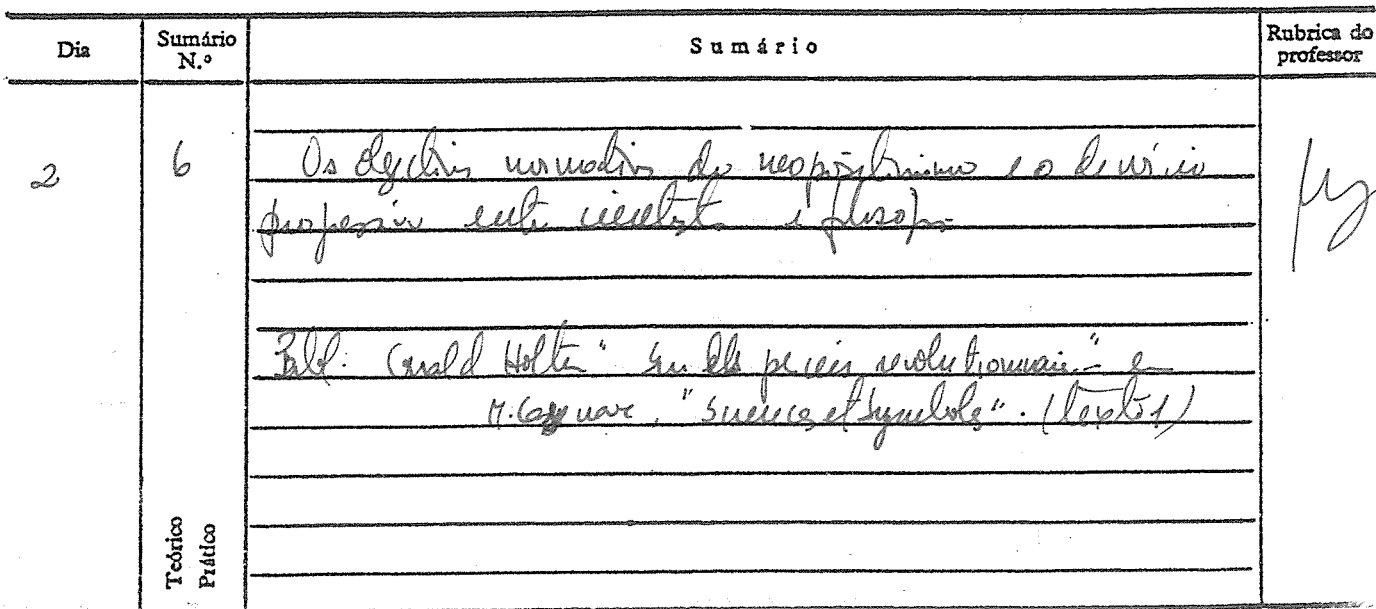 Dia
Sumário N.º
Sumário
Rubrica do professor
2
6
Os objectivos normativos do neopositivismo e o divórcio
progressivo entre cientistas e filósofos
Bibl: Gerald Holton "
M. "Sciences et Symboles". (texto 1)
Teórico
Prático